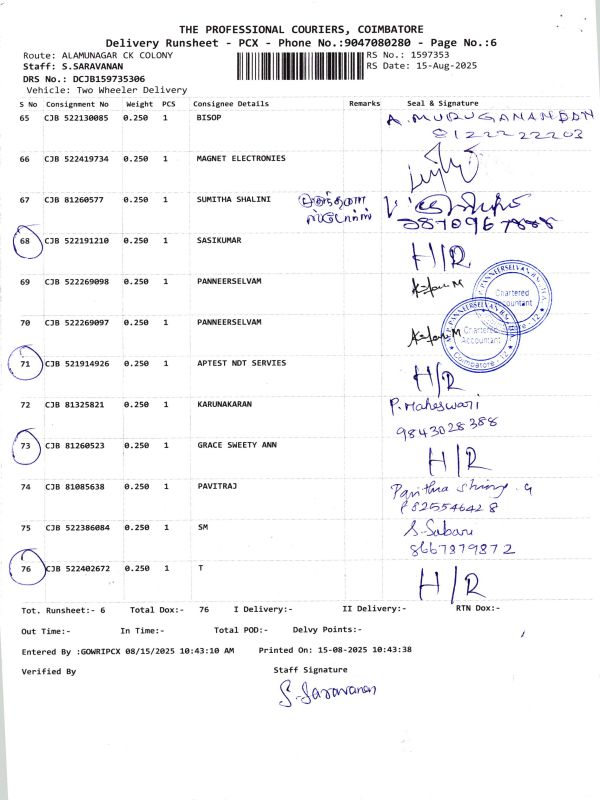 THE PROFESSIONAL COURIERS, COIMBATORE
Delivery Runsheet - PCX - Phone No.:9047080280 - Page No.:6
Route: ALAMUNAGAR CK COLONY RS No.: 1597353
Staff: S.SARAVANAN RS Date: 15-Aug-2025
DRS No.: DCJB159735306
Vehicle: Two Wheeler Delivery
S No Consignment No Weight PCS Consignee Details Remarks Seal & Signature
65 CJB 522130085 0.250 1 BISOP A. MURUGANANDAN
9122222203
66 CJB 522419734 0.250 1 MAGNET ELECTRONIES
67 CJB 81260577 0.250 1 SUMITHA SHALINI
68 CJB 522191210 0.250 1 SASIKUMAR H/R
69 CJB 522269098 0.250 1 PANNEERSELVAM
Chartered
Accountant
70 CJB 522269097 0.250 1 PANNEERSELVAM
Chartered
Accountant
Coimbatore - 12
71 CJB 521914926 0.250 1 APTEST NDT SERVIES H/R
72 CJB 81325821 0.250 1 KARUNAKARAN P. Maheswari
9843028388
73 CJB 81260523 0.250 1 GRACE SWEETY ANN H/R
74 CJB 81085638 0.250 1 PAVITRAJ
75 CJB 522386084 0.250 1 SM S. Sabari
8667879872
76 CJB 522402672 0.250 1 T H/R
Tot. Runsheet:- 6 Total Dox:- 76 I Delivery:- II Delivery:- RTN Dox:-
Out Time:- In Time:- Total POD:- Delvy Points:-
Entered By :GOWRIPCX 08/15/2025 10:43:10 AM Printed On: 15-08-2025 10:43:38
Verified By Staff Signature
S. Saravanan